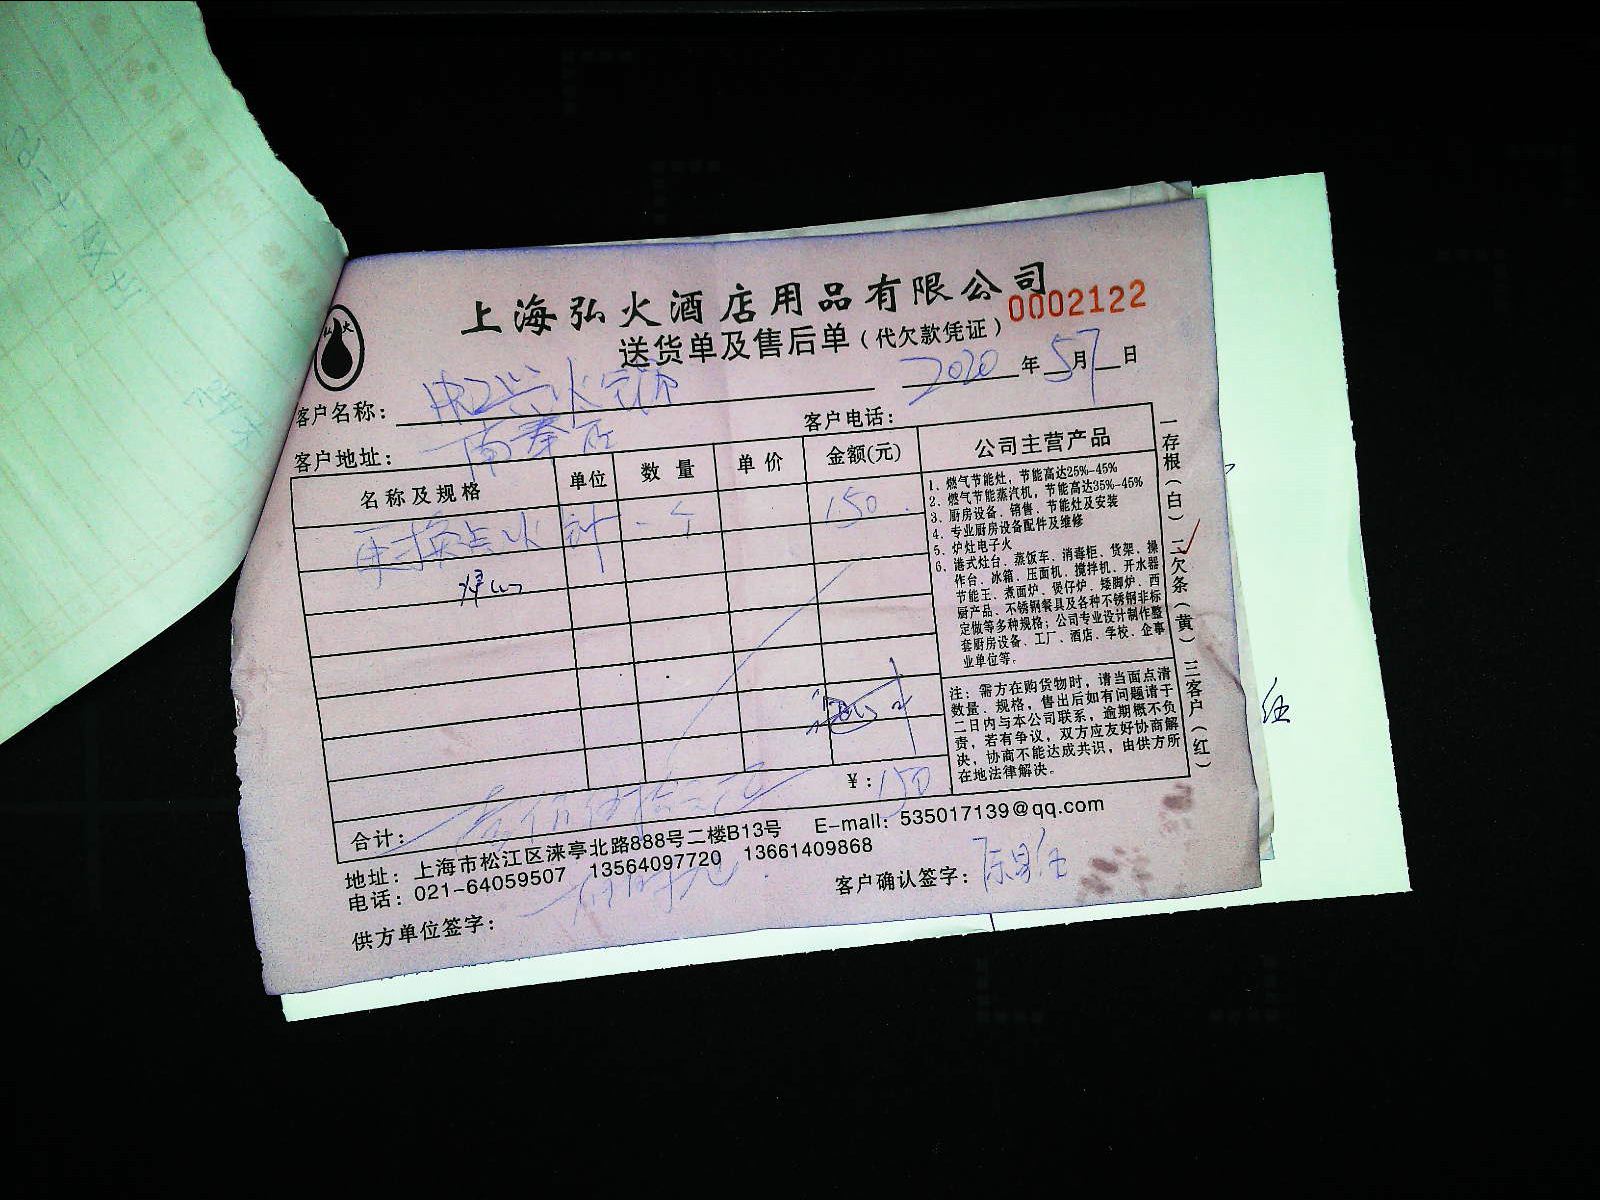 上海弘火酒店用品有限公司
0002122
送货单及售后单（代欠款凭证）
2020年5月7日
客户名称：
客户电话：
客户地址：南奉
名称及规格 单位 数量 单价 金额(元)
换点火针 一个 150
合计：壹佰伍拾元 ¥：150
公司主营产品
1、燃气节能灶，节能高达25%-45%
2、燃气节能蒸汽机，节能高达35%-45%
3、厨房设备、销售、节能灶及安装
4、专业厨房设备配件及维修
5、炉灶电子火
6、港式灶台、蒸饭车、消毒柜、货架、操
作台、冰箱、压面机、搅拌机、开水器
节能王、煮面炉、煲仔炉、矮脚炉、西
厨产品、不锈钢餐具及各种不锈钢非标
定做等多种规格；公司专业设计制作整
套厨房设备、工厂、酒店、学校、企事
业单位等。
注：需方在购货物时，请当面点清
数量、规格，售出后如有问题请于
二日内与本公司联系，逾期概不负
责，若有争议，双方应友好协商解
决，协商不能达成共识，由供方所
在地法律解决。
一存根（白）二欠条（黄）三客户（红）
地址：上海市松江区涞亭北路888号二楼B13号 E-mall：535017139@qq.com
电话：021-64059507 13564097720 13661409868
供方单位签字：
客户确认签字：